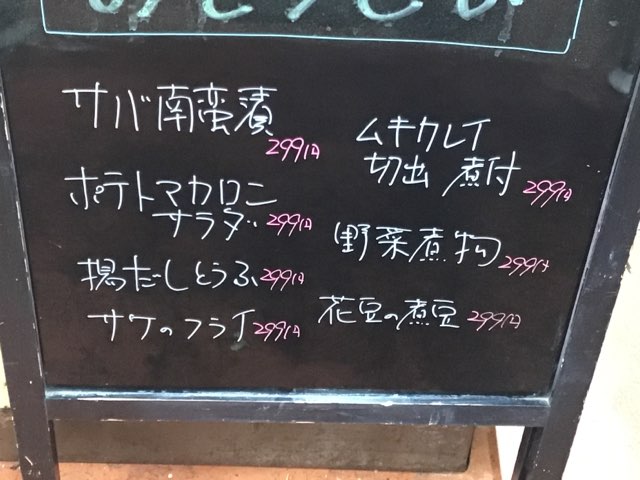 サバ南蛮漬
299円
ポテトマカロニ
サラダ 299円
揚だしとうふ 299円
サケのフライ 299円
ムキカレイ
切出 煮付 299円
野菜煮物 299円
花豆の煮豆 299円